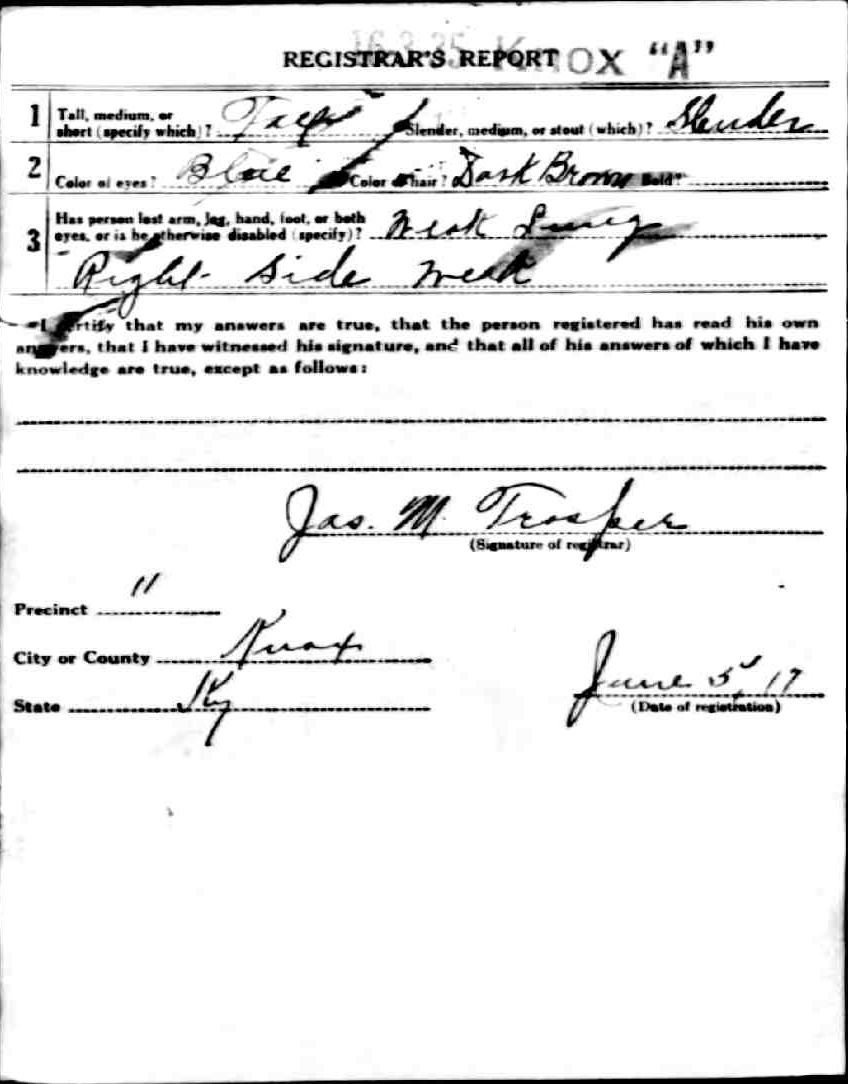 16 3 25 Knox "A"
REGISTRAR'S REPORT
1 Tall, medium, or short (specify which)? Tall Slender, medium, or stout (which)? Slender
2 Color of eyes? Blue Color of hair? Dark Brown Bald?
3 Has person lost arm, leg, hand, foot, or both
eyes, or is he otherwise disabled (specify)? Weak Lung
Right Side Weak
I certify that my answers are true, that the person registered has read his own
answers, that I have witnessed his signature, and that all of his answers of which I have
knowledge are true, except as follows:
Jas. M. Trosper
(Signature of registrar)
Precinct 11
City or County Knox
State Ky
June 5, 17
(Date of registration)